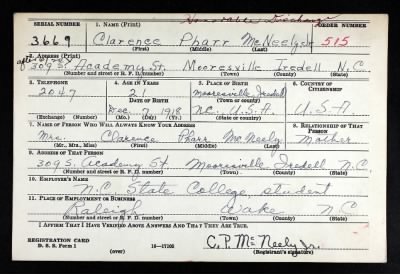 Honorable Discharge
SERIAL NUMBER 1. NAME (Print) ORDER NUMBER
3669 Clarence Pharr McNeely Jr 515
(First) (Middle) (Last)
2. ADDRESS (Print)
309 S. Academy St. Mooresville Iredell N.C.
(Number and street or R. F. D. number) (Town) (County) (State)
3. TELEPHONE 4. AGE IN YEARS 5. PLACE OF BIRTH 6. COUNTRY OF CITIZENSHIP
2047 21 Mooresville Iredell
DATE OF BIRTH (Town or county)
Dec 7 1918 N.C. U.S.A. U.S.A.
(Exchange) (Number) (Mo.) (Day) (Yr.) (State or country)
7. NAME OF PERSON WHO WILL ALWAYS KNOW YOUR ADDRESS 8. RELATIONSHIP OF THAT PERSON
Mrs. Clarence Pharr McNeely Mother
(Mr., Mrs., Miss) (First) (Middle) (Last)
9. ADDRESS OF THAT PERSON
309 S. Academy St. Mooresville Iredell N.C.
(Number and street or R. F. D. number) (Town) (County) (State)
10. EMPLOYER'S NAME
N.C. State College, student
11. PLACE OF EMPLOYMENT OR BUSINESS
Raleigh Wake N.C.
(Number and street or R. F. D. number) (Town) (County) (State)
I AFFIRM THAT I HAVE VERIFIED ABOVE ANSWERS AND THAT THEY ARE TRUE.
REGISTRATION CARD
D. S. S. Form 1 (over) 16—17105 C. P. McNeely Jr.
(Registrant's signature)